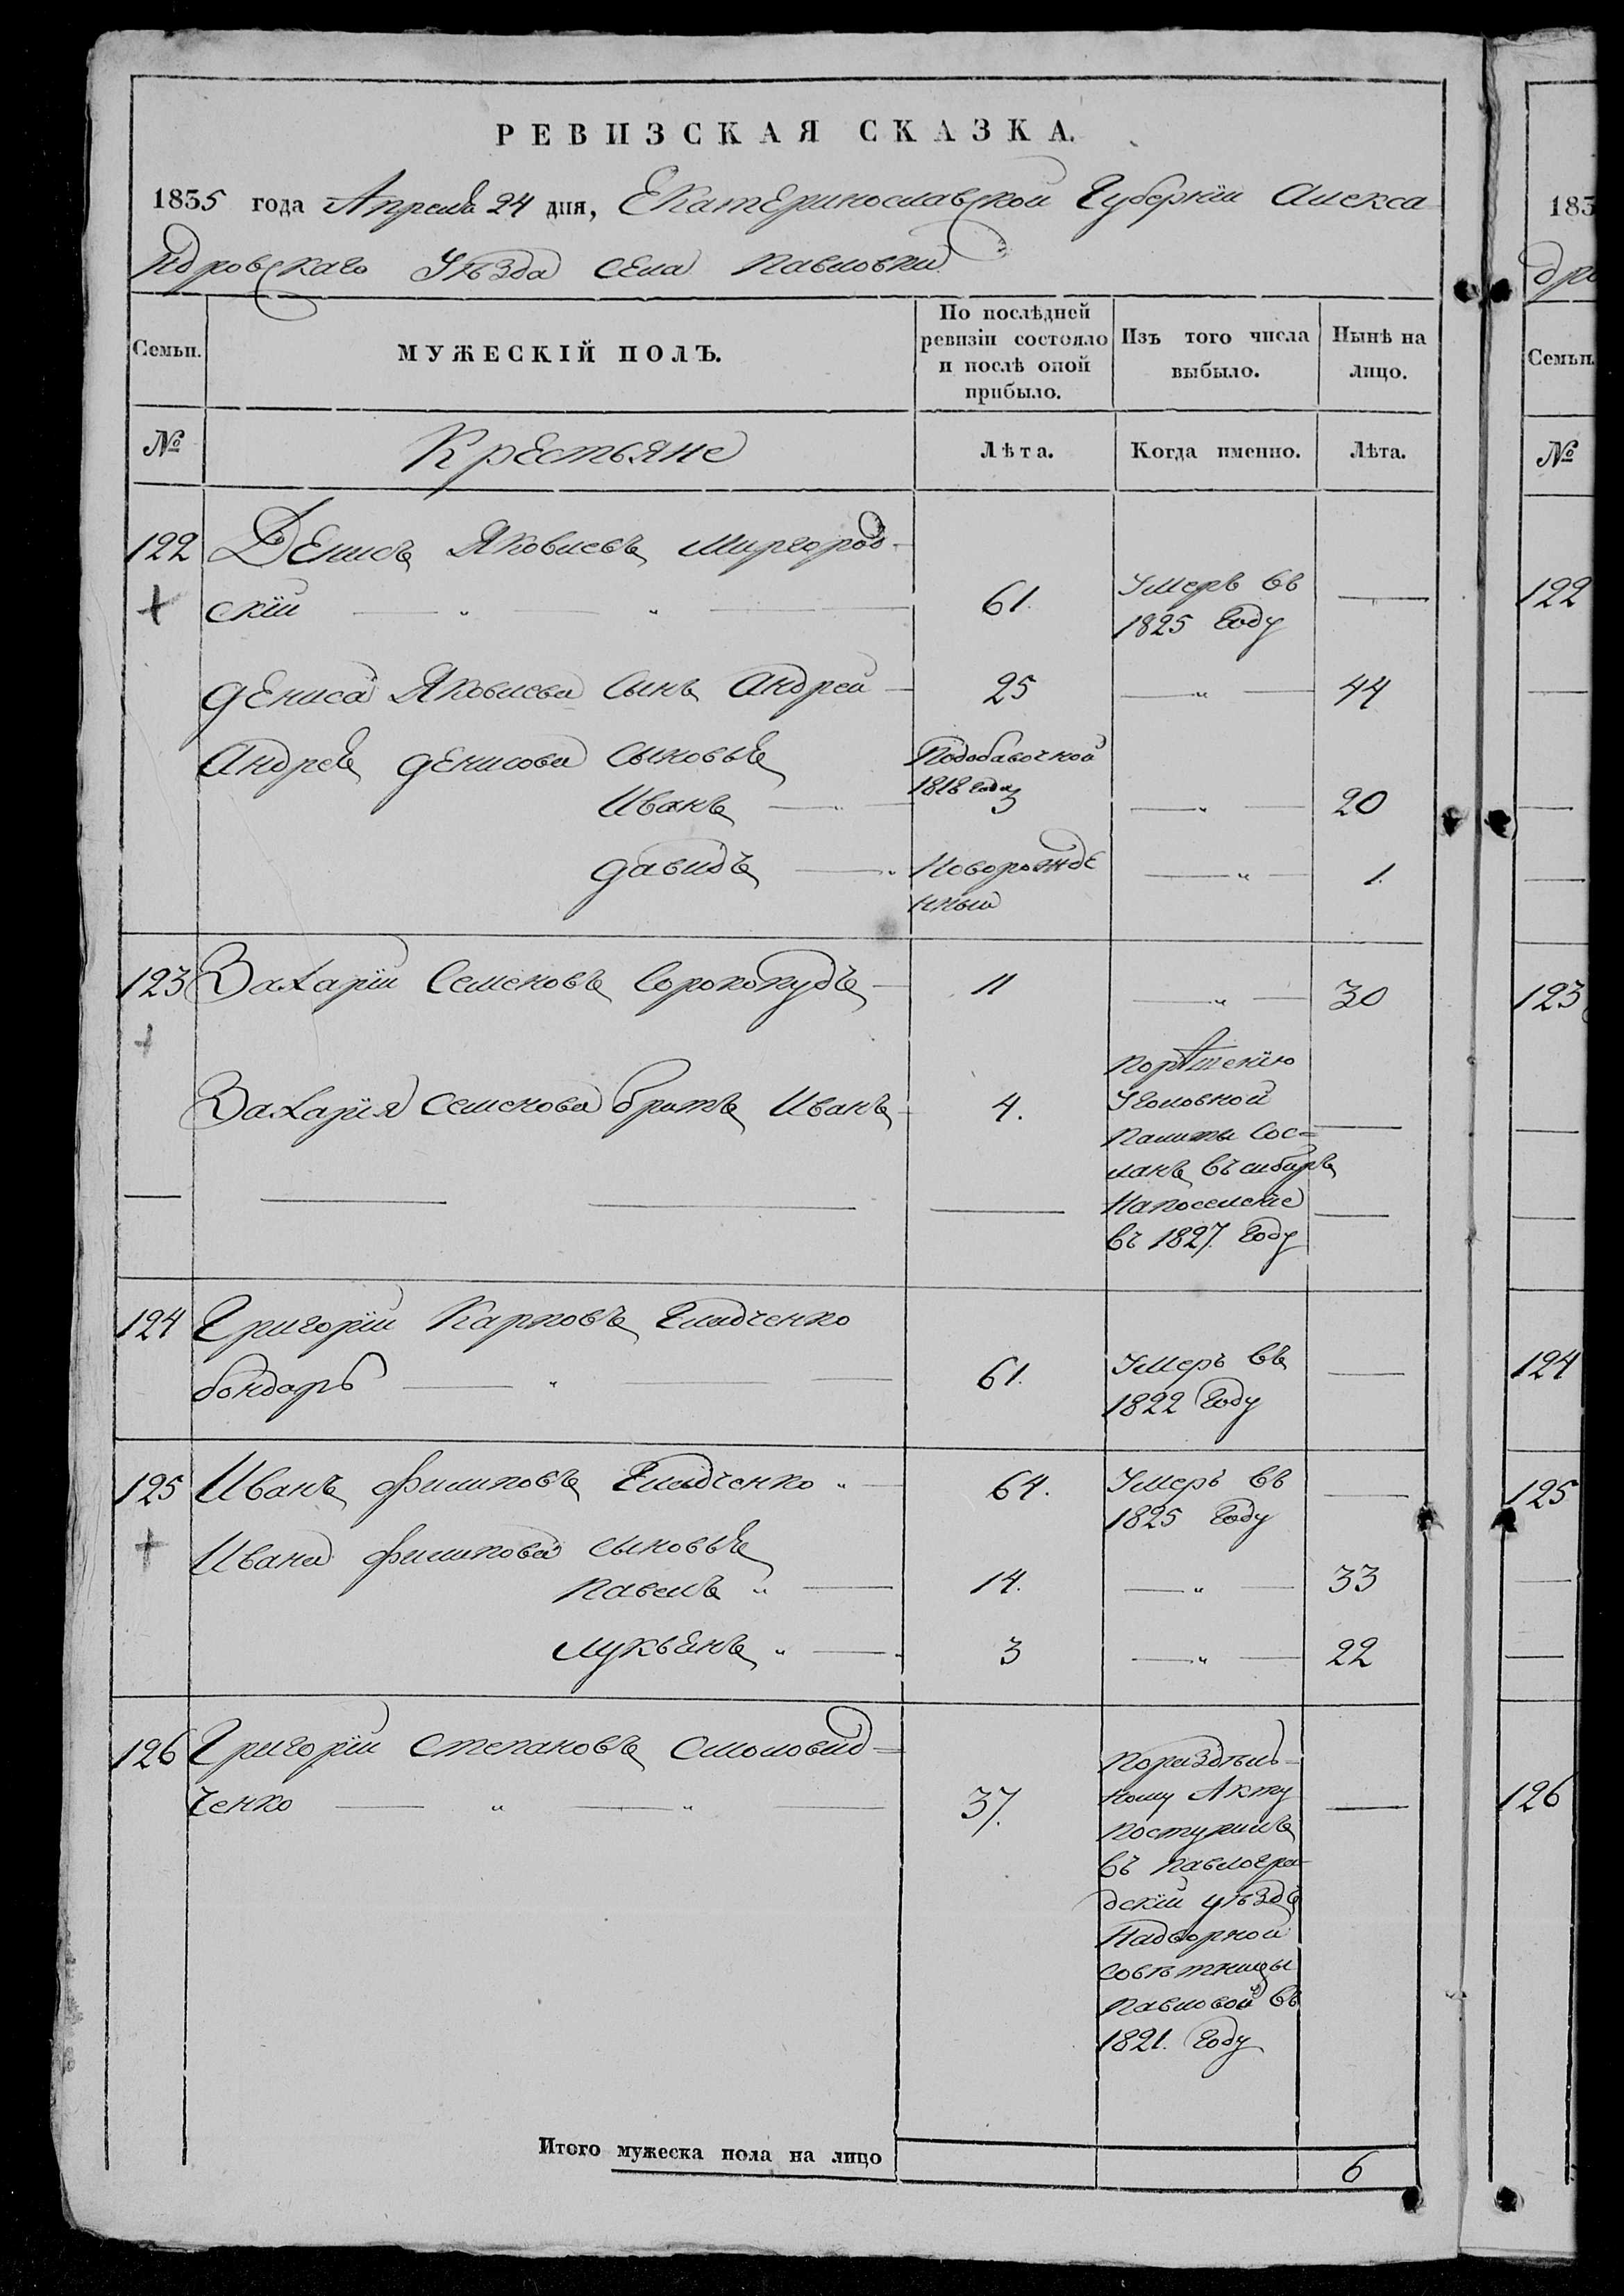 РЕВИЗСКАЯ СКАЗКА.
1835 года Апреля 24 дня, Екатеринославской Губернии Алекса
ндровскаго Уѣзда села Павловки
Семьи. МУЖЕСКІЙ ПОЛЪ. По послѣдней ревизіи состояло и послѣ оной прибыло. Изъ того числа выбыло. Нынѣ на лицо.
№ Крестьяне Лѣта. Когда именно. Лѣта.
122 Денисъ Яковлевъ Миргород-
скій 61. Умеръ въ
1825 году
Дениса Яковлева сынъ Андрей 25 44
Андрея Денисова сыновья Подобавочной
Иванъ 1818 года 3 20
Давидъ Новорожде
нный 1.
123 Захарій Семеновъ Сорокопудъ 11 30
Захарія Семенова братъ Иванъ 4. Порѣшенію
Уголовной
Палаты сос=
ланъ въ сибирь
Напоселеніе
въ 1827. году
124 Григорій Карповъ Гладченко
бондарь 61. Умеръ въ
1822 году
125 Иванъ Филиповъ Гладченко 64. Умеръ въ
1825 году
Ивана Филипова сыновья
Павелъ 14. 33
Лукьянъ 3 22
126 Григорій Степановъ Смоловид=
ченко 37. Пораздѣль-
ному Акту
Поступилъ
въ Павлогра-
дскій уѣздъ
Надворной
совѣтницы
Павловой въ
1821. году
Итого мужеска пола на лицо 6
183
дро
Семьи.
№
122
123
124
125
126